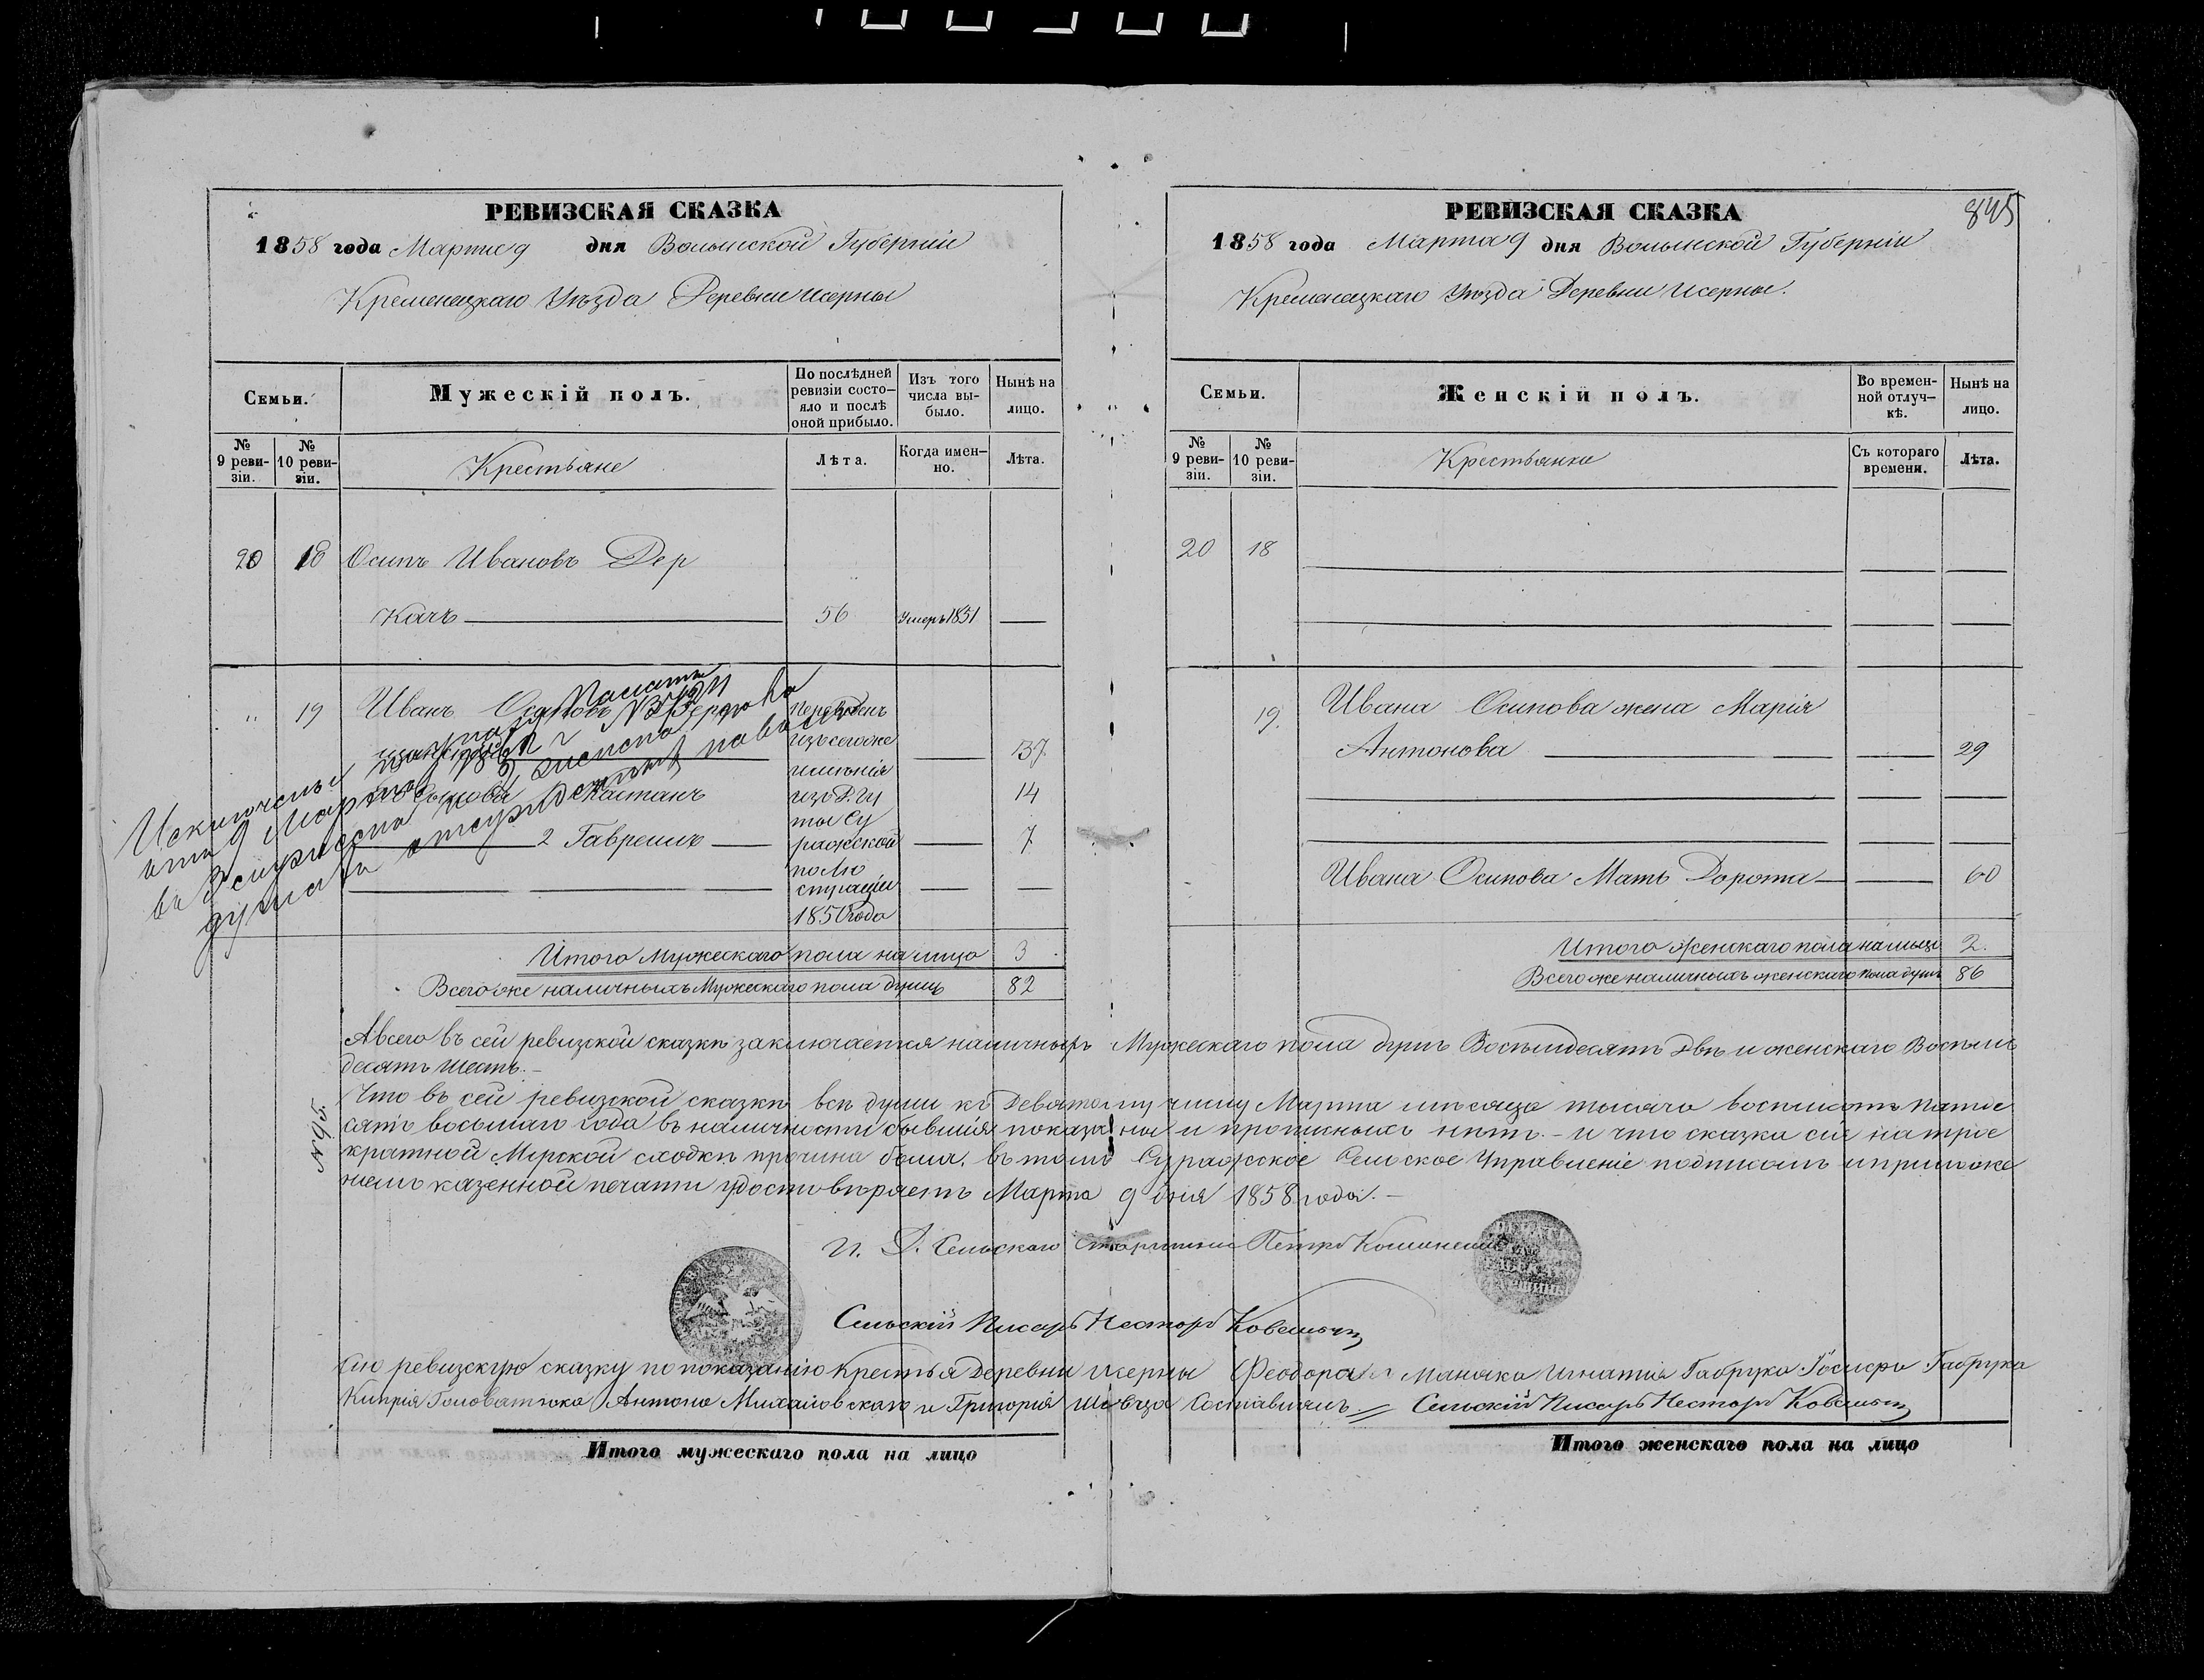 РЕВИЗСКАЯ СКАЗКА
1858 года Марта 9 дня Волынской Губерніи
Кременецкаго Уѣзда Деревни Исерны
Семьи.
Мужескій полъ.
По послѣдней ревизіи состо-
яло и послѣ
оной прибыло.
Изъ того
числа вы-
было.
Нынѣ на
лицо.
№
9 реви-
зіи.
№
10 реви-
зіи.
Крестьяне
Лѣта.
Когда имен-
но.
Лѣта.
20 18 Осипъ Ивановъ Дер
качъ 56 Умеръ 1851
" 19 Иванъ Осиповъ
Переведенъ
изъ сегоже
имѣнія
изъ Д. Гу
ты Су
ражской
по Лю
страціи
1850 года
37
Каетанъ 14
2 Гаврешъ 7
Итого мужескаго пола на лицо 3
Всего же наличныхъ Мужескаго пола душъ 82
РЕВИЗСКАЯ СКАЗКА
845
1858 года Марта 9 дня Волынской Губерніи
Кременецкаго Уѣзда Деревни Исерны.
Семьи.
Женскій полъ.
Во времен-
ной отлуч-
кѣ.
Нынѣ на
лицо.
№
9 реви-
зіи.
№
10 реви-
зіи.
Крестьянки
Съ котораго
времени.
Лѣта.
20 18
19. Ивана Осипова жена Марія
Антонова 29
Ивана Осипова Мать Дорота 60
Итого женскаго пола на лицо 2.
Всего же наличныхъ женскаго пола душъ 86
А всего въ сей ревизской сказкѣ заключается наличныхъ Мужескаго пола душъ Восемьдесятъ Двѣ и женскаго Восемь
десятъ шесть.
Что въ сей ревизской сказкѣ всѣ души къ Девятому числу Марта мѣсяца тысяча восемьсотъ пятьде
сятъ восьмаго года въ наличности бывшія показаны и прописныхъ нѣтъ. – и что сказка сія на трое
кратной Мирской сходкѣ прочина была. въ томъ Суражское Сельское Управленіе подписомъ и приложе
ніемъ казенной печати удостовѣряетъ Марта 9 дня 1858 года. –
И. Д. Сельскаго Старшины Петръ
Сельскій Писарь Несторъ
Сію ревизскую сказку по показанію Крестья Деревни Исерны Феодора Маняка Игнатія Габрука Іосифа Габрука
Кипрія Головатюка Антона Михаловскаго и Григорія Шевца Составлялъ. = Сельскій Писарь Несторъ
Итого мужескаго пола на лицо
Итого женскаго пола на лицо